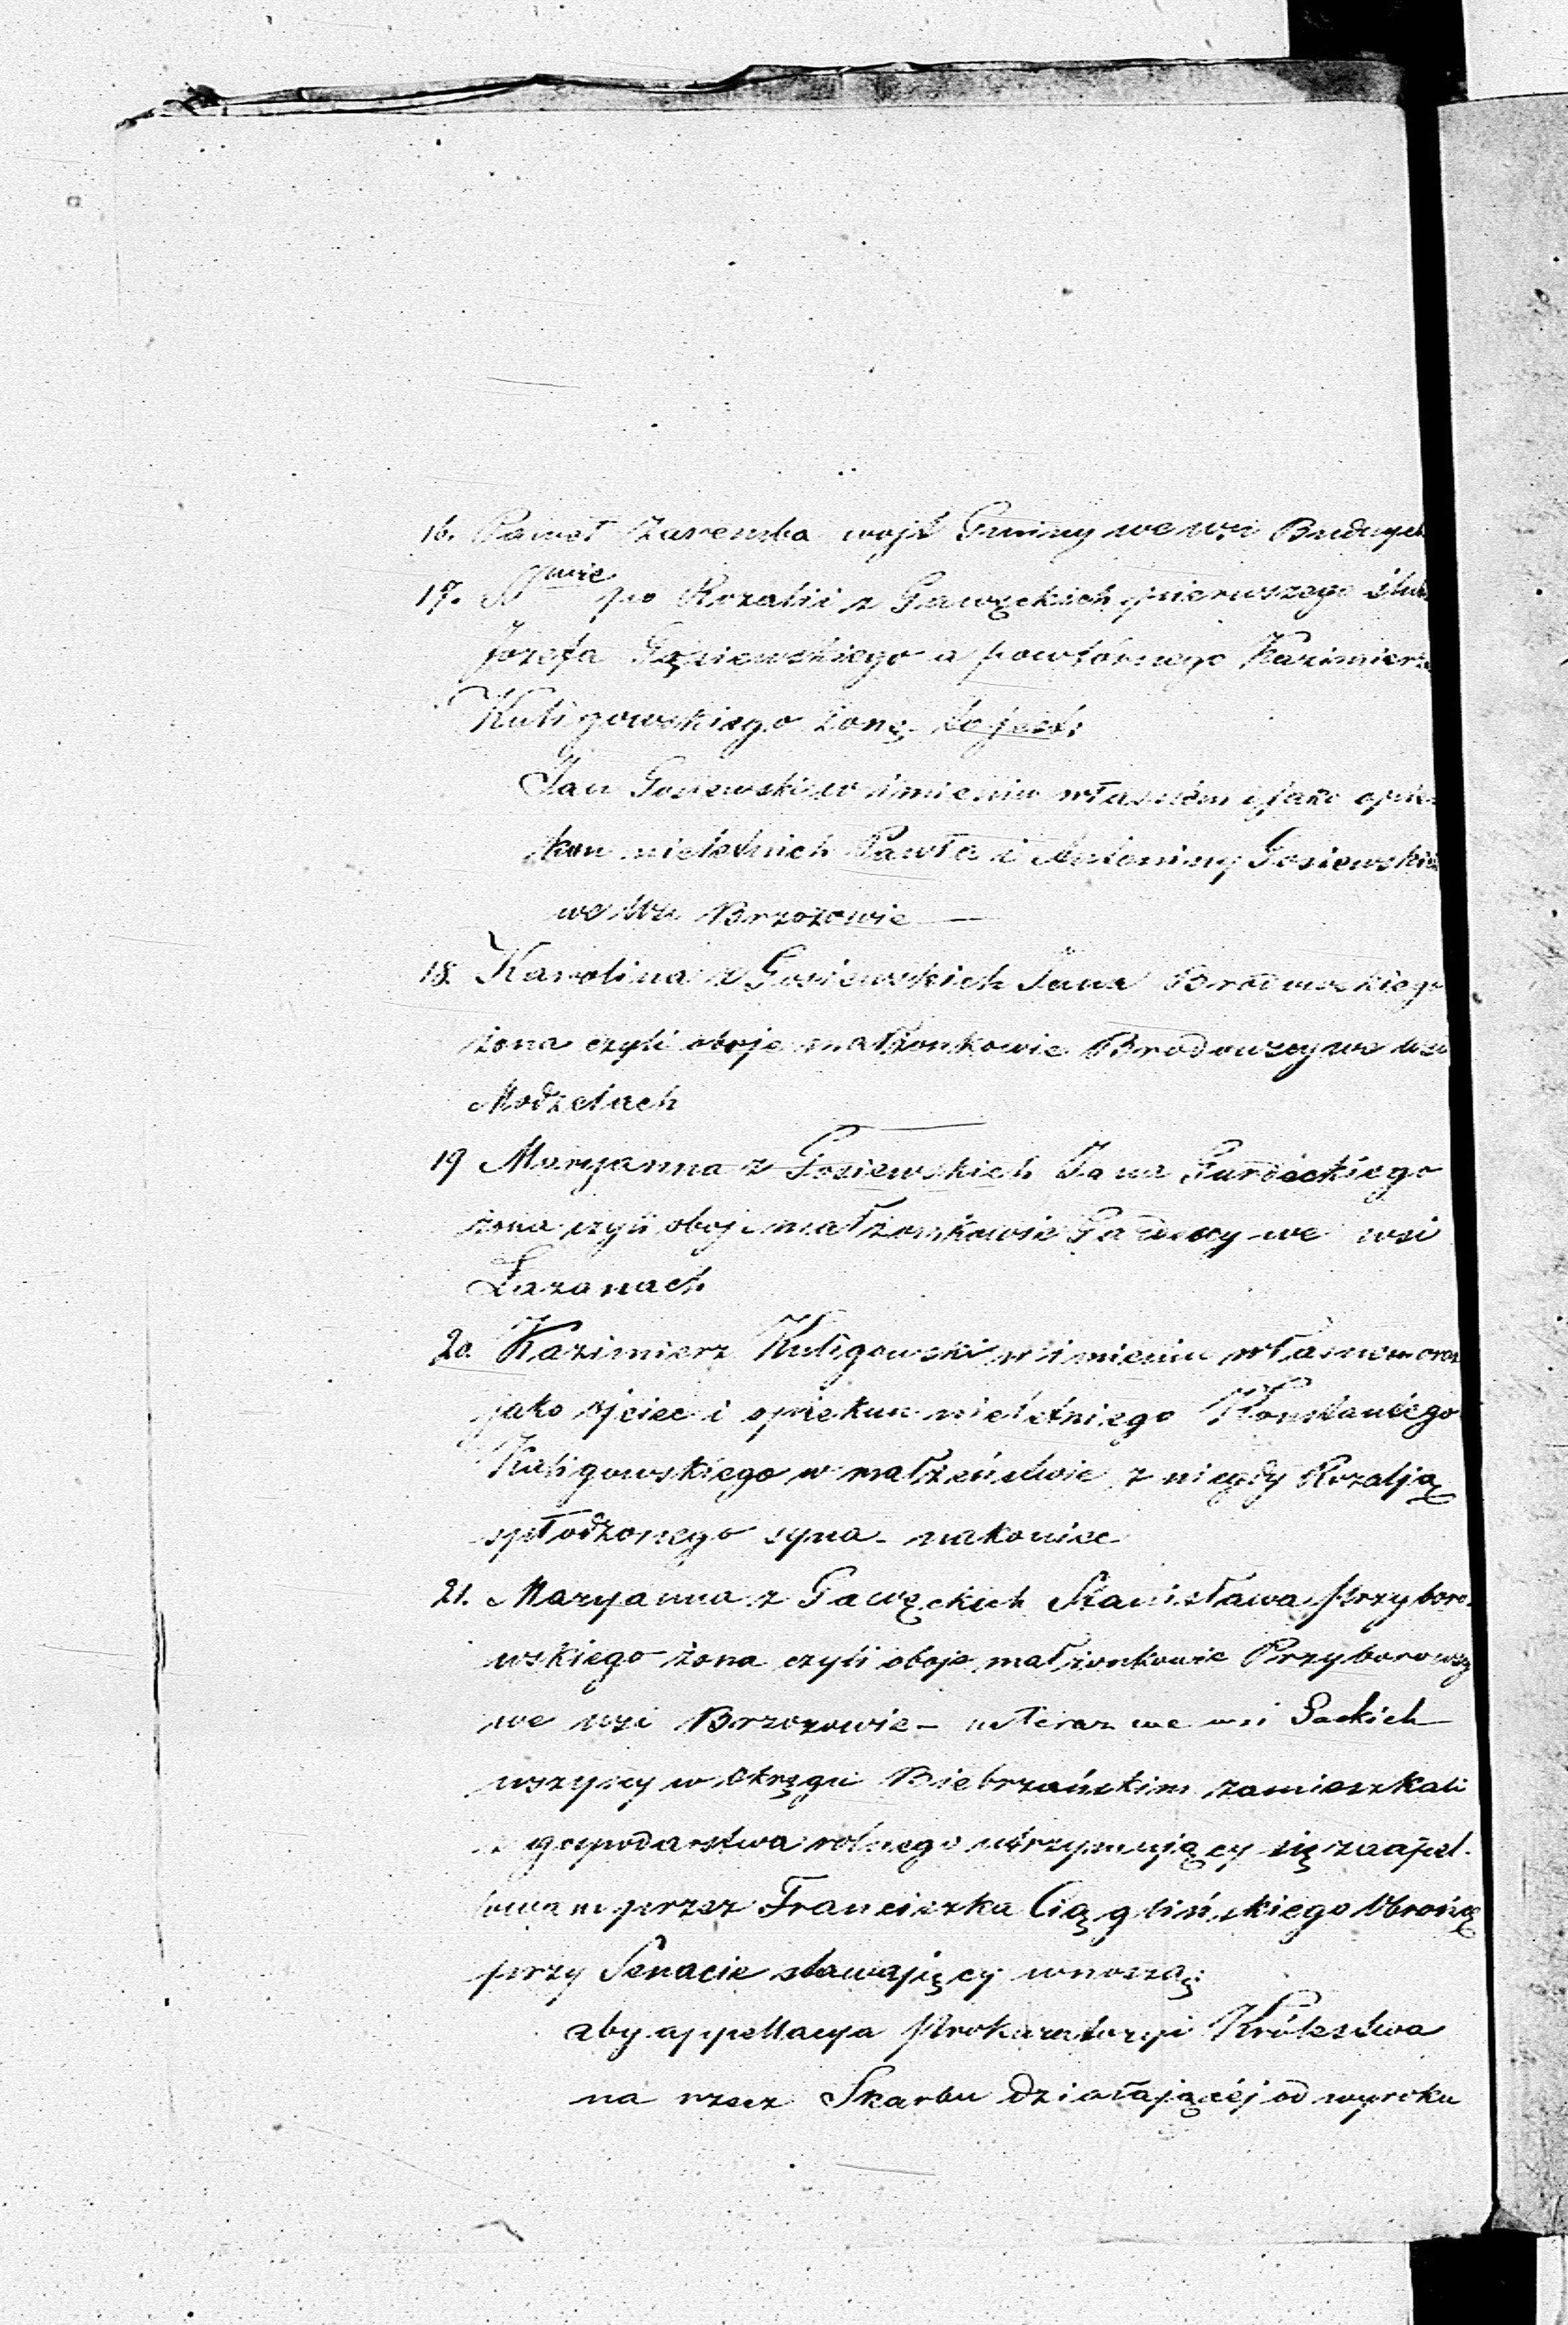 16. Paweł Zaremba wójt Gminy we wsi Budnych
17. S<sup>kowie</sup> po Rozalii z Gawęckich pierwszego ślubu
Józefa Gąsiewskiego a powtórnego Kazimierza
Kuligowskiego żonę to jest:
Jan Gosiewski w imieniu własném i jako opie-
kun nieletnich Pawła i Antoniny Gosiewskich
we wsi Brzozowie —
18. Karolina z Gosiewskich Jana Brodowskiego
żona czyli oboje małżonkowie Brodowscy we wsi
Modzelach
19 Maryanna z Gosiewskich Jana Gardockiego
żona czyli oboje małżonkowie we wsi
Łazanach
20. Kazimierz Kuligowski w imieniu własnem oraz
jako ojciec i opiekun nieletniego Konstantego
Kuligowskiego w małżeństwie z niegdy Rozalją
spłodzonego syna - nakoniec
21. Maryanna z Gawęckich Stanisława Przyboro-
wskiego żona czyli oboje małżonkowie Przyborowscy
we wsi Brzozowie - a teraz we wsi Sackich
wszyscy w Okręgu Biebrzańskim zamieszkali
z gospodarstwa rolnego utrzymujący się zaapel-
lowani przez Franciszka Ciąglińskiego Obrońcę
przy Senacie stawający wnoszą:
aby appellacya Prokuratoryi Królestwa
na rzecz Skarbu działającéj od wyroku